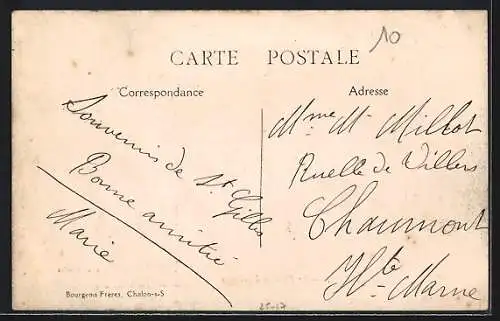 10
CARTE POSTALE
Correspondance
Souvenir de St. Gilles
Bonne amitié
Marie
Adresse
Mme M. Millot
Ruelle de Villers
Chaumont
Hte Marne
Bourgeois Frères, Chalon-s-S
25-17